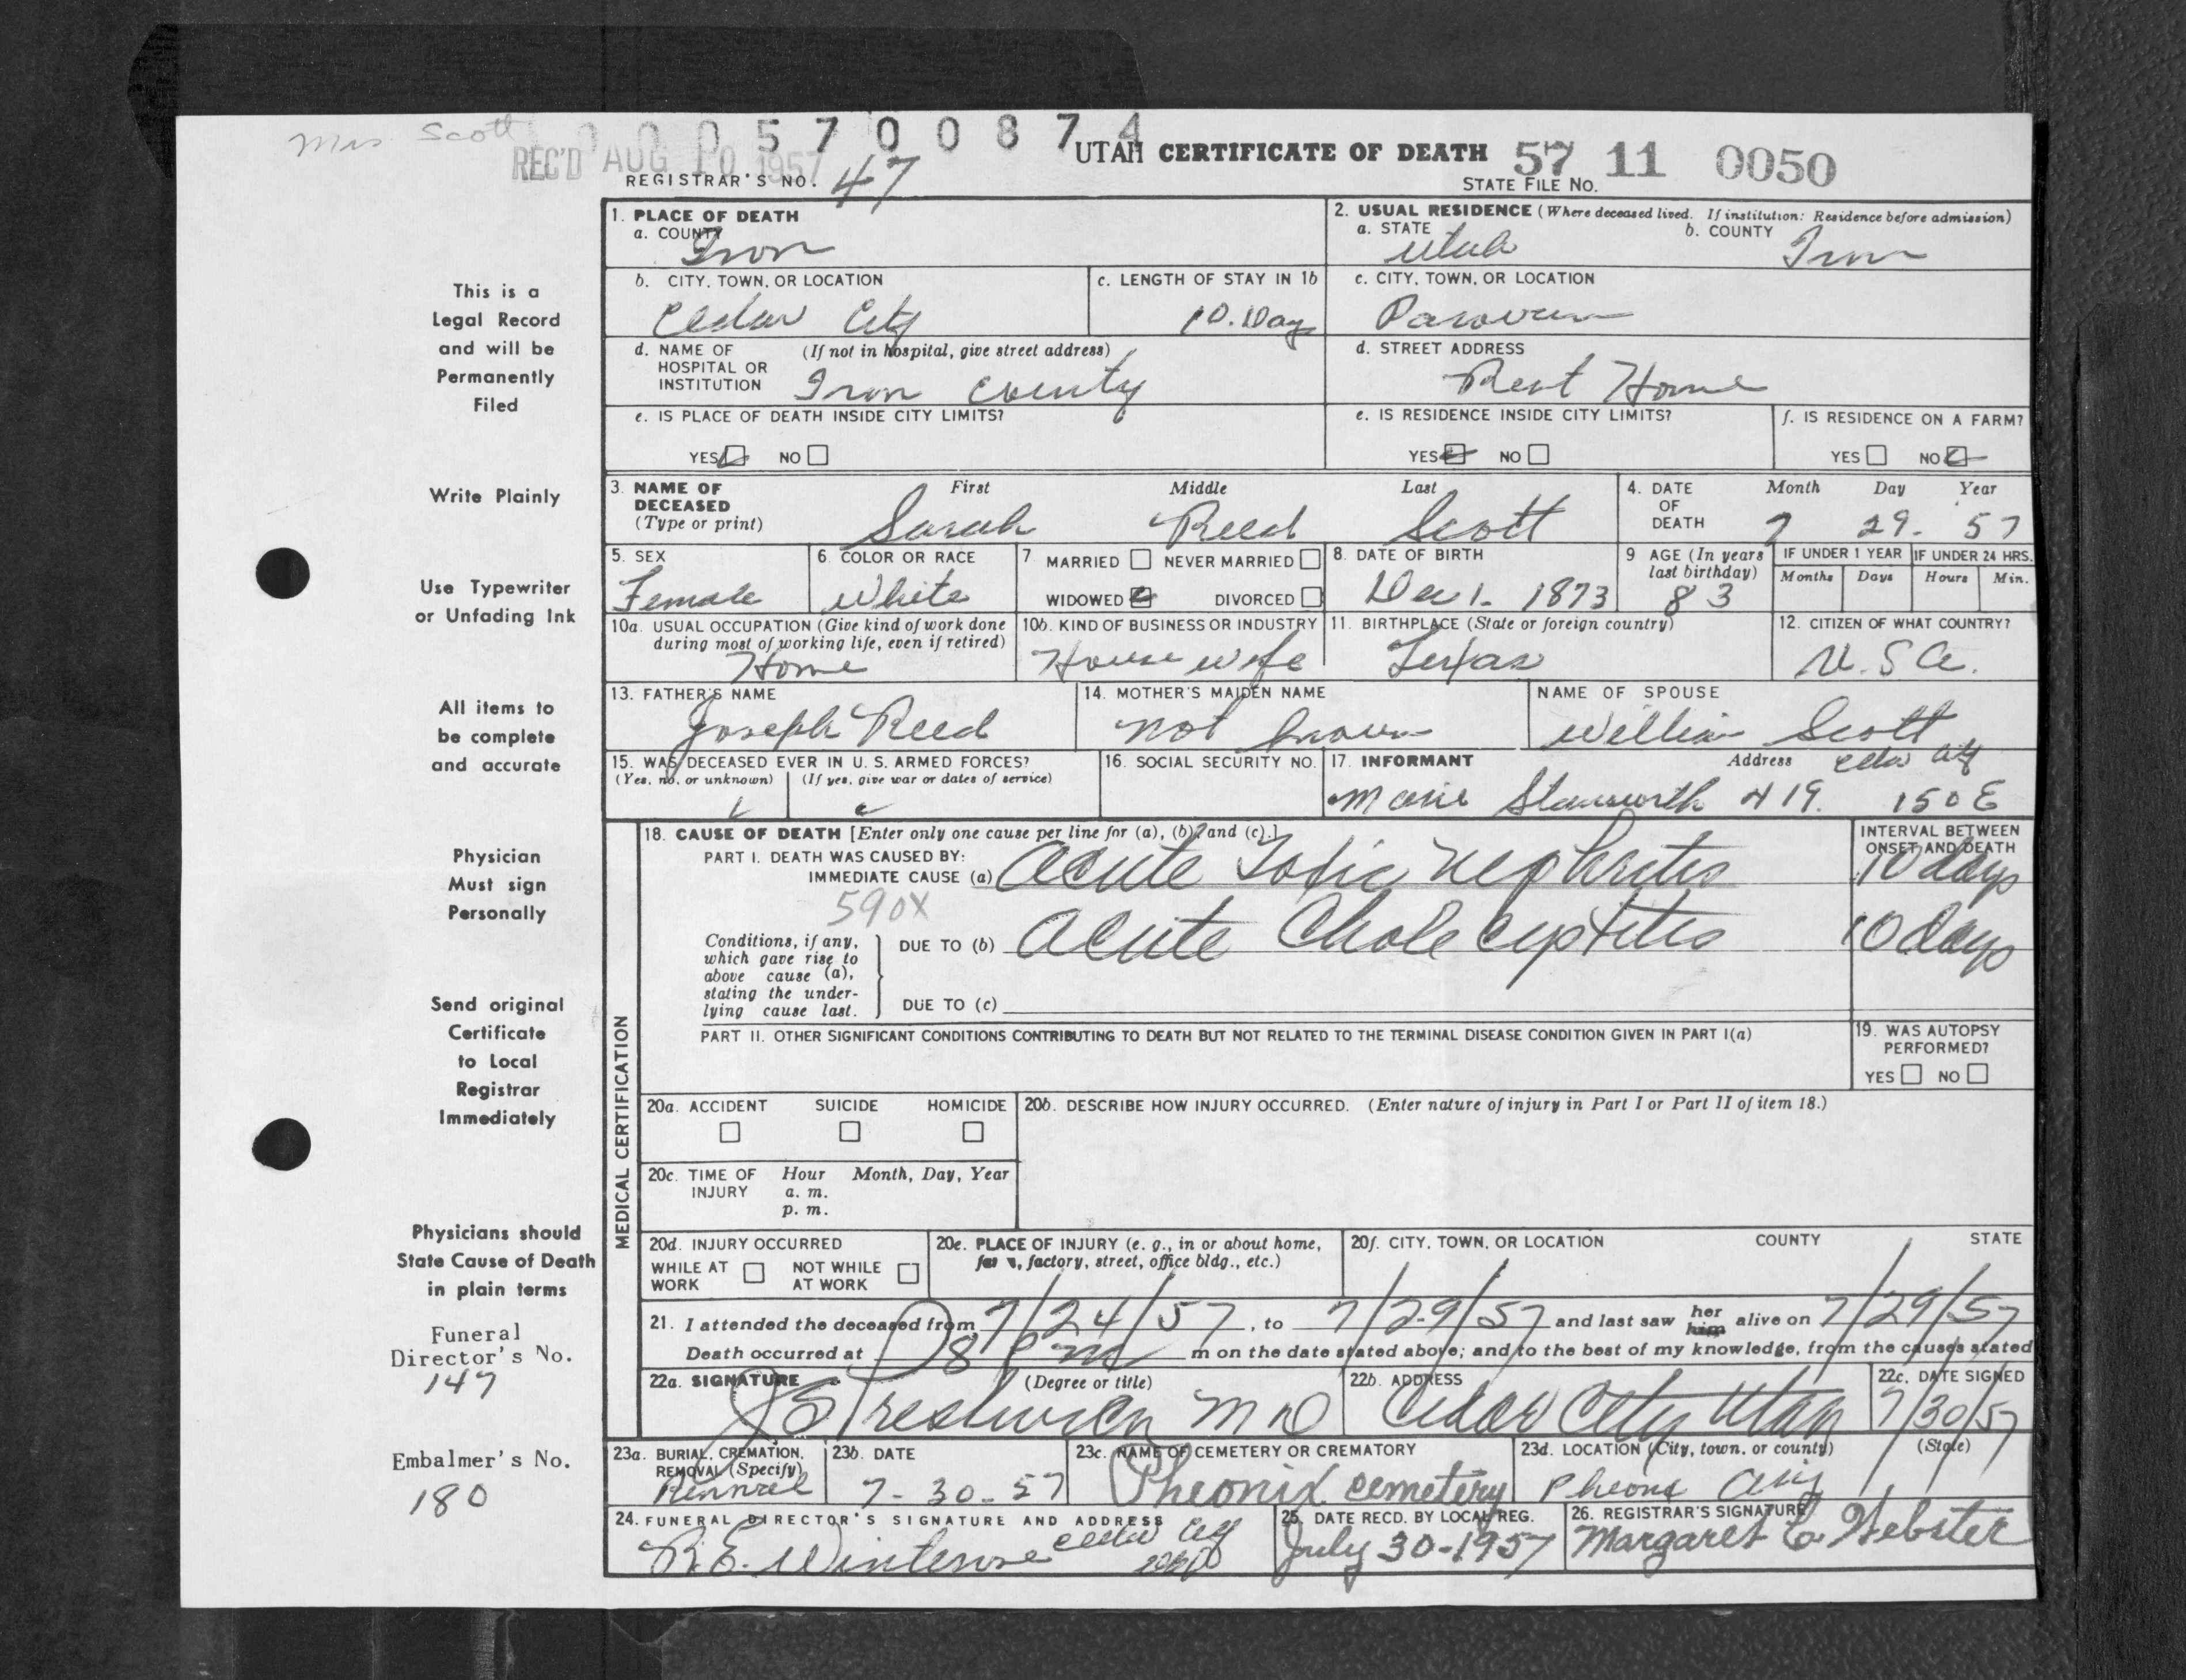 Mrs Scott
0 0 0 5 7 0 0 8 7 4
REC'D AUG 10 1957
UTAH CERTIFICATE OF DEATH 57 11 0050
REGISTRAR'S NO. 47
STATE FILE NO.
This is a
Legal Record
and will be
Permanently
Filed
Write Plainly
Use Typewriter
or Unfading Ink
All items to
be complete
and accurate
Physician
Must sign
Personally
Send original
Certificate
to Local
Registrar
Immediately
Physicians should
State Cause of Death
in plain terms
Funeral
Director's No.
147
Embalmer's No.
180
1. PLACE OF DEATH
a. COUNTY
Iron
2. USUAL RESIDENCE (Where deceased lived. If institution: Residence before admission)
a. STATE b. COUNTY
Utah Iron
b. CITY, TOWN, OR LOCATION
Cedar City
c. LENGTH OF STAY IN 1b
10. Day
c. CITY, TOWN, OR LOCATION
Parowan
d. NAME OF (If not in hospital, give street address)
HOSPITAL OR
INSTITUTION Iron County
d. STREET ADDRESS
Rest Home
e. IS PLACE OF DEATH INSIDE CITY LIMITS?
YES NO
e. IS RESIDENCE INSIDE CITY LIMITS?
YES NO
f. IS RESIDENCE ON A FARM?
YES NO
3. NAME OF First Middle Last
DECEASED
(Type or print) Sarah Reed Scott
4. DATE Month Day Year
OF
DEATH 7 29. 57
5. SEX
Female
6. COLOR OR RACE
White
7 MARRIED NEVER MARRIED
WIDOWED DIVORCED
8. DATE OF BIRTH
Dec 1. 1873
9 AGE (In years
last birthday)
83
IF UNDER 1 YEAR IF UNDER 24 HRS.
Months Days Hours Min.
10a. USUAL OCCUPATION (Give kind of work done
during most of working life, even if retired)
Home
10b. KIND OF BUSINESS OR INDUSTRY
House wife
11. BIRTHPLACE (State or foreign country)
Texas
12. CITIZEN OF WHAT COUNTRY?
U.S.A.
13. FATHER'S NAME
Joseph Reed
14. MOTHER'S MAIDEN NAME
not known
NAME OF SPOUSE
William Scott
15. WAS DECEASED EVER IN U. S. ARMED FORCES?
(Yes, no, or unknown) (If yes, give war or dates of service)
16. SOCIAL SECURITY NO.
17. INFORMANT Address Cedar City
Marie Stansworth 419. 150 E
MEDICAL CERTIFICATION
18. CAUSE OF DEATH [Enter only one cause per line for (a), (b), and (c).]
PART I. DEATH WAS CAUSED BY:
IMMEDIATE CAUSE (a) Acute Toxic Nephritis
590X
INTERVAL BETWEEN
ONSET AND DEATH
10 days
Conditions, if any,
which gave rise to
above cause (a),
stating the under-
lying cause last.
DUE TO (b) Acute Cholecystitis 10 days
DUE TO (c)
PART II. OTHER SIGNIFICANT CONDITIONS CONTRIBUTING TO DEATH BUT NOT RELATED TO THE TERMINAL DISEASE CONDITION GIVEN IN PART I(a)
19. WAS AUTOPSY
PERFORMED?
YES NO
20a. ACCIDENT SUICIDE HOMICIDE
20b. DESCRIBE HOW INJURY OCCURRED. (Enter nature of injury in Part I or Part II of item 18.)
20c. TIME OF Hour Month, Day, Year
INJURY a. m.
p. m.
20d. INJURY OCCURRED
WHILE AT NOT WHILE
WORK AT WORK
20e. PLACE OF INJURY (e. g., in or about home,
farm, factory, street, office bldg., etc.)
20f. CITY, TOWN, OR LOCATION COUNTY STATE
21. I attended the deceased from 7/24/57, to 7/29/57 and last saw her him alive on 7/29/57
Death occurred at 8 Pm m on the date stated above; and to the best of my knowledge, from the causes stated
22a. SIGNATURE (Degree or title)
Prestwich MD
22b. ADDRESS
Cedar City Utah
22c. DATE SIGNED
7/30/57
23a. BURIAL, CREMATION,
REMOVAL (Specify)
23b. DATE
7-30-57
23c. NAME OF CEMETERY OR CREMATORY
Pheonix Cemetery
23d. LOCATION (City, town, or county) (State)
Pheonx Ariz
24. FUNERAL DIRECTOR'S SIGNATURE AND ADDRESS
R.E. Winterose Cedar City
25. DATE RECD. BY LOCAL REG.
July 30-1957
26. REGISTRAR'S SIGNATURE
Margaret C. Webster